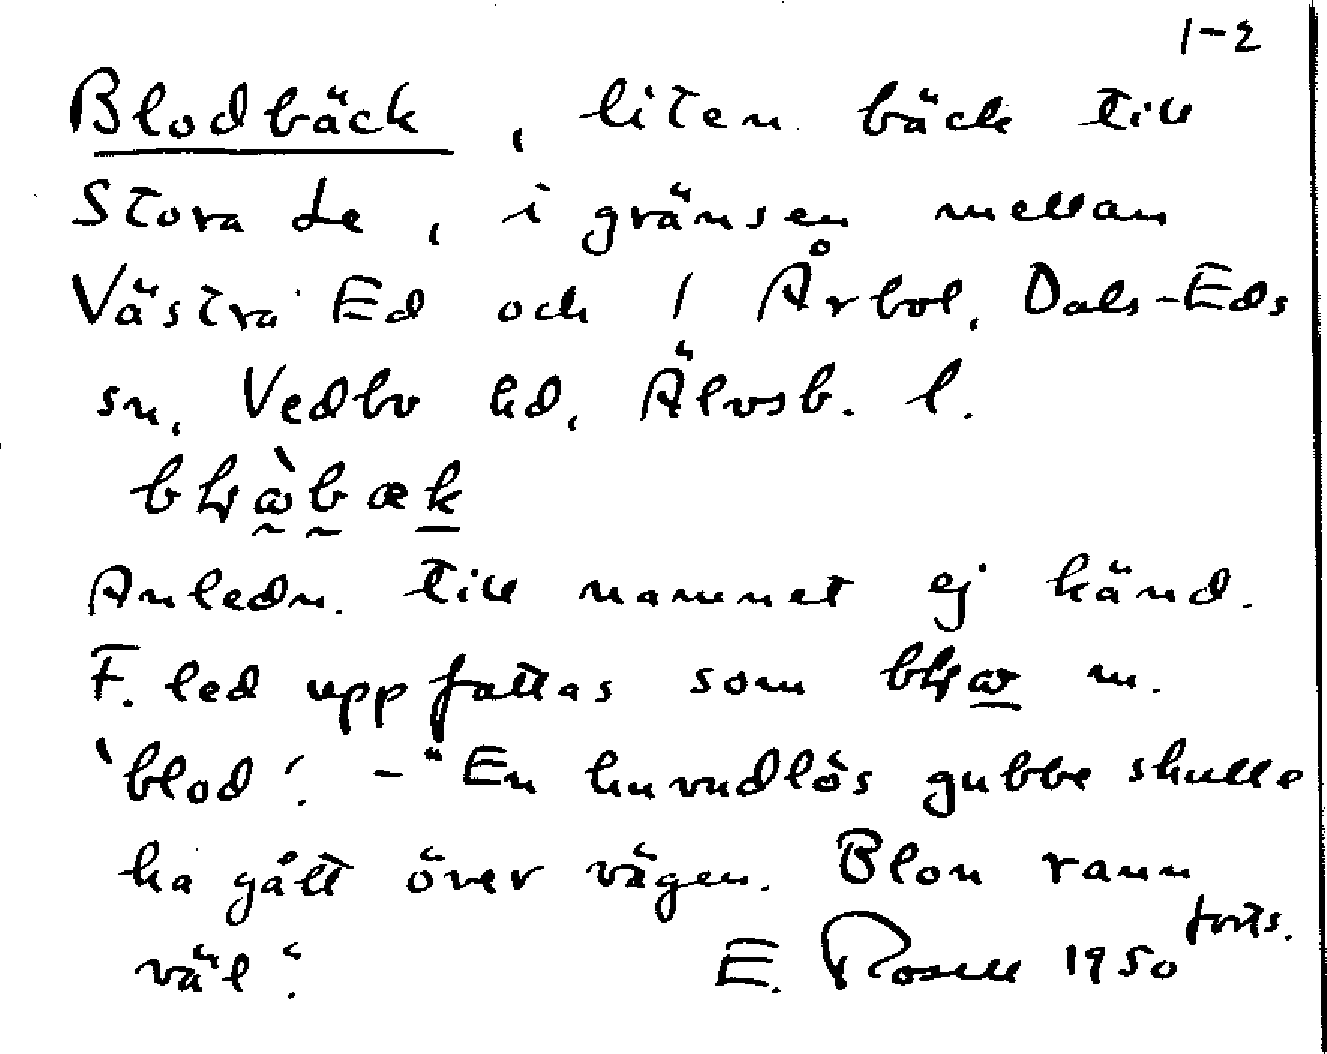 1-2
Blodbäck, liten bäck till
Stora Le, i gränsen mellan
Västra Ed och 1 Årbol, Dals-Eds
sn, Vedbo hd, Älvsb. l.
Anledn. till namnet ej känd.
F. led uppfattas som m.
'blod'. - "En huvudlös gubbe skulle
ha gått över vägen. Blon rann
väl". E. Rosell 1950 forts.